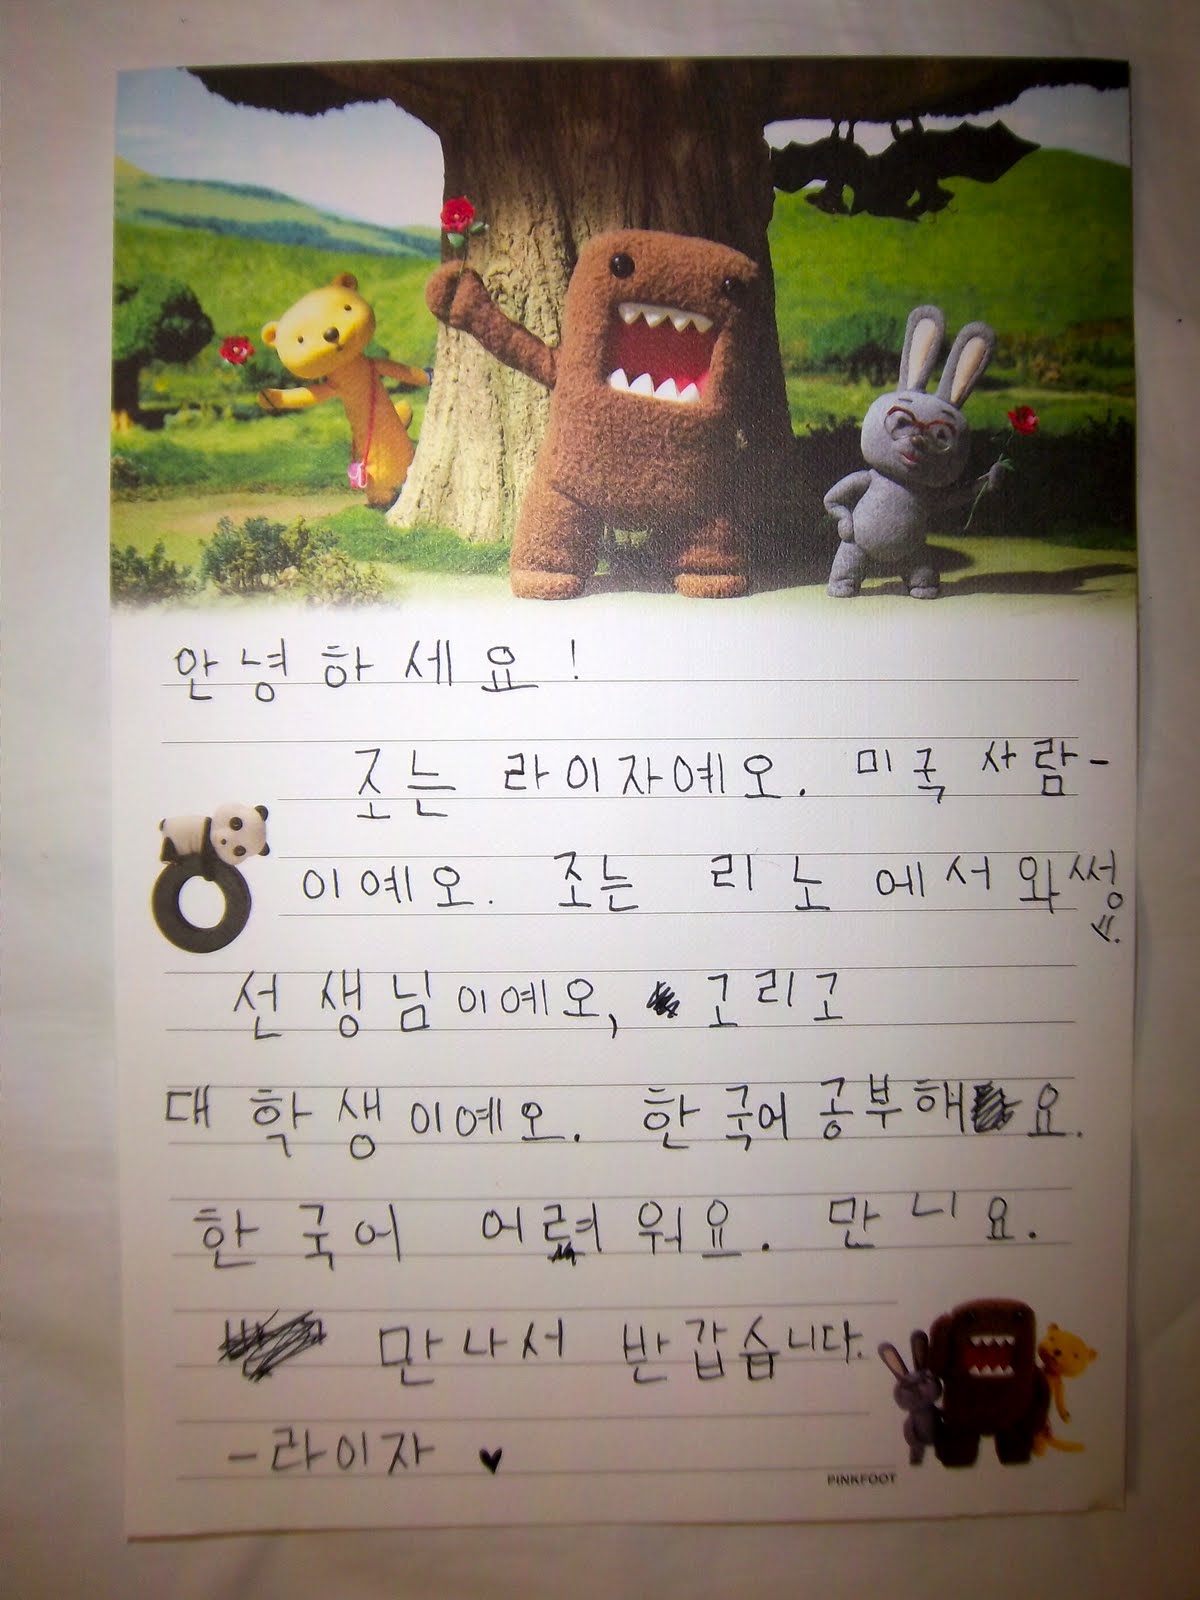 안녕하세요!
조는 라이자예오. 미국 사람-
이예오. 조는 리노 에서 와썽
선생님이예오, 고리고
대학생이예오. 한국어 공부해요.
한국어 어려워요. 만니요.
만나서 반갑습니다.
-라이자 ♥
PINKFOOT